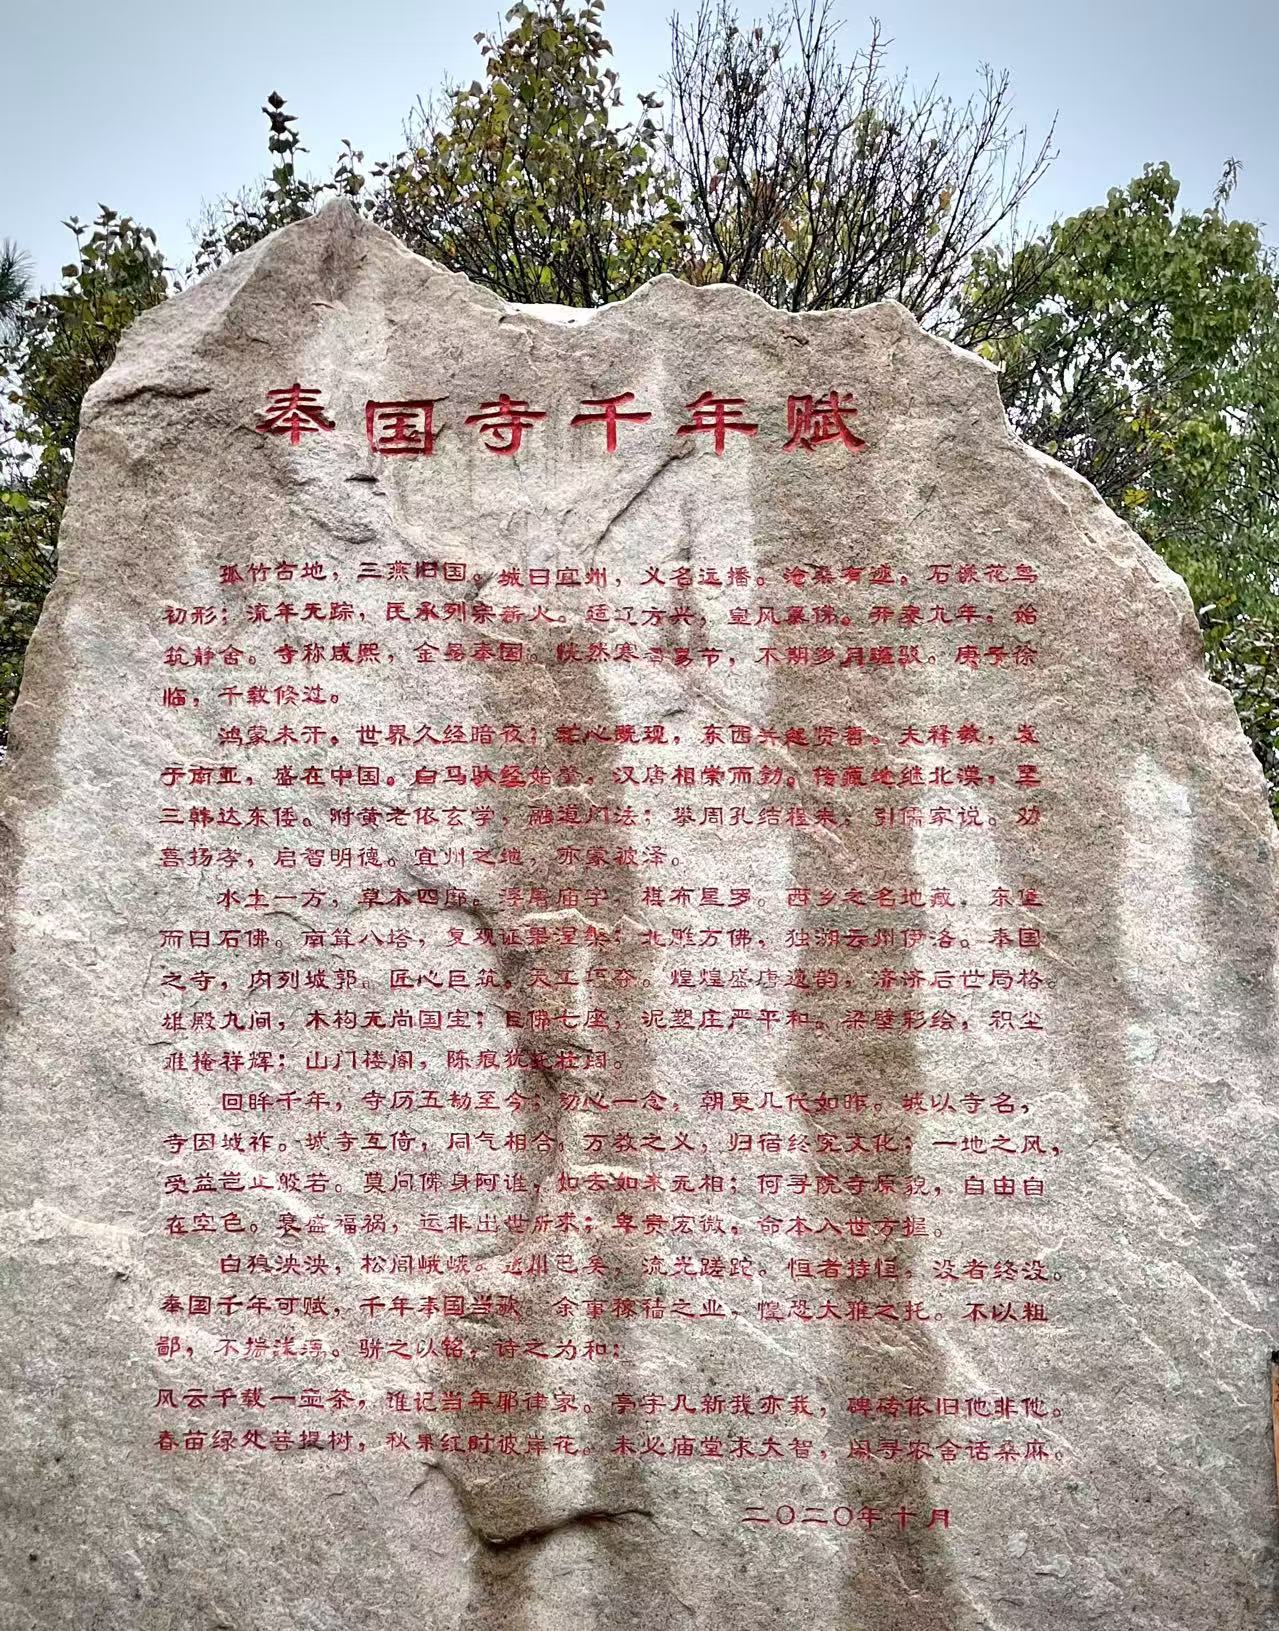 奉国寺千年赋
孤竹古地，三燕旧国。城曰宜州，义名远播。沧桑有迹，石嵌花鸟
初形；流年无踪，民承列宗薪火。适辽方兴，皇风慕佛。开泰九年，始
筑静舍。寺称咸熙，金易奉国。恍然寒暑易节，不期岁月斑驳。庚子徐
临，千载倏过。
鸿蒙未开，世界久经暗夜；慧心既现，东西共趋贤者。夫释教，发
于南亚，盛在中国。白马驮经始莹，汉唐相崇而勃。传藏地继北漠，
三韩达东倭。附黄老依玄学，融道门法；攀周孔结程朱，引儒家说。劝
善扬孝，启智明德。宜州之地，亦蒙被泽。
水土一方，草木四廊。浮屠庙宇，棋布星罗。西乡之名地藏，东堡
而曰石佛。南耸八塔，复观证果涅槃；北雕万佛，独溯云州伊洛。奉国
之寺，内列城郭。匠心巨筑，天工巧夺。煌煌盛唐遗韵，济济后世局格。
雄殿九间，木构无尚国宝；巨佛七座，泥塑庄严平和。梁壁彩绘，积尘
难掩祥辉；山门楼阁，陈痕犹托壮阔。
回眸千年，寺历五劫至今；动心一念，朝更几代如昨。城以寺名，
寺因城祚。城寺互倚，同气相合。万教之义，归宿终究文化；一地之风，
受益岂止般若。莫问佛身阿谁，如去如来无相；何寻院寺原貌，自由自
在空色。衰盛福祸，运非出世所求；卑贵宏微，命本入世方握。
白狼泱泱，松阁峨峨。逝川已矣，流光蹉跎。恒者持恒，没者终没。
奉国千年可赋，千年奉国当歌。余事稼穑之业，惶恐大雅之托。不以粗
鄙，不揣浅薄。骈之以铭，诗之为和：
风云千载一盅茶，谁记当年耶律家。亭宇几新我亦我，碑砖依旧他非他。
春苗绿处菩提树，秋果红时彼岸花。未必庙堂求大智，闲寻农舍话桑麻。
二〇二〇年十月